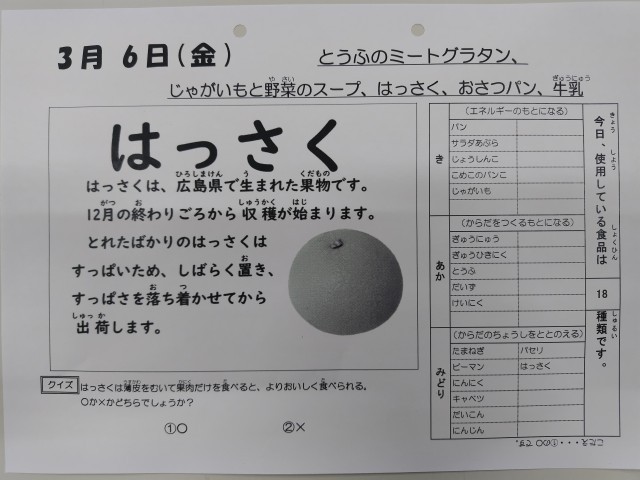 3月 6日(金)
とうふのミートグラタン、
じゃがいもと野菜のスープ、はっさく、おさつパン、牛乳
はっさく
はっさくは、広島県で生まれた果物です。
12月の終わりごろから収穫が始まります。
とれたばかりのはっさくは
すっぱいため、しばらく置き、
すっぱさを落ち着かせてから
出荷します。
クイズ
はっさくは薄皮をむいて果肉だけを食べると、よりおいしく食べられる。
○か×かどちらでしょうか?
①○ ②×
今日、使用している食品は
18
種類です。
き
(エネルギーのもとになる)
パン
サラダあぶら
じょうしんこ
こめこのパンこ
じゃがいも
あか
(からだをつくるもとになる)
ぎゅうにゅう
ぎゅうひきにく
とうふ
だいず
けいにく
みどり
(からだのちょうしをととのえる)
たまねぎ パセリ
ピーマン はっさく
にんにく
キャベツ
だいこん
にんじん
こたえ・・・①の○です。